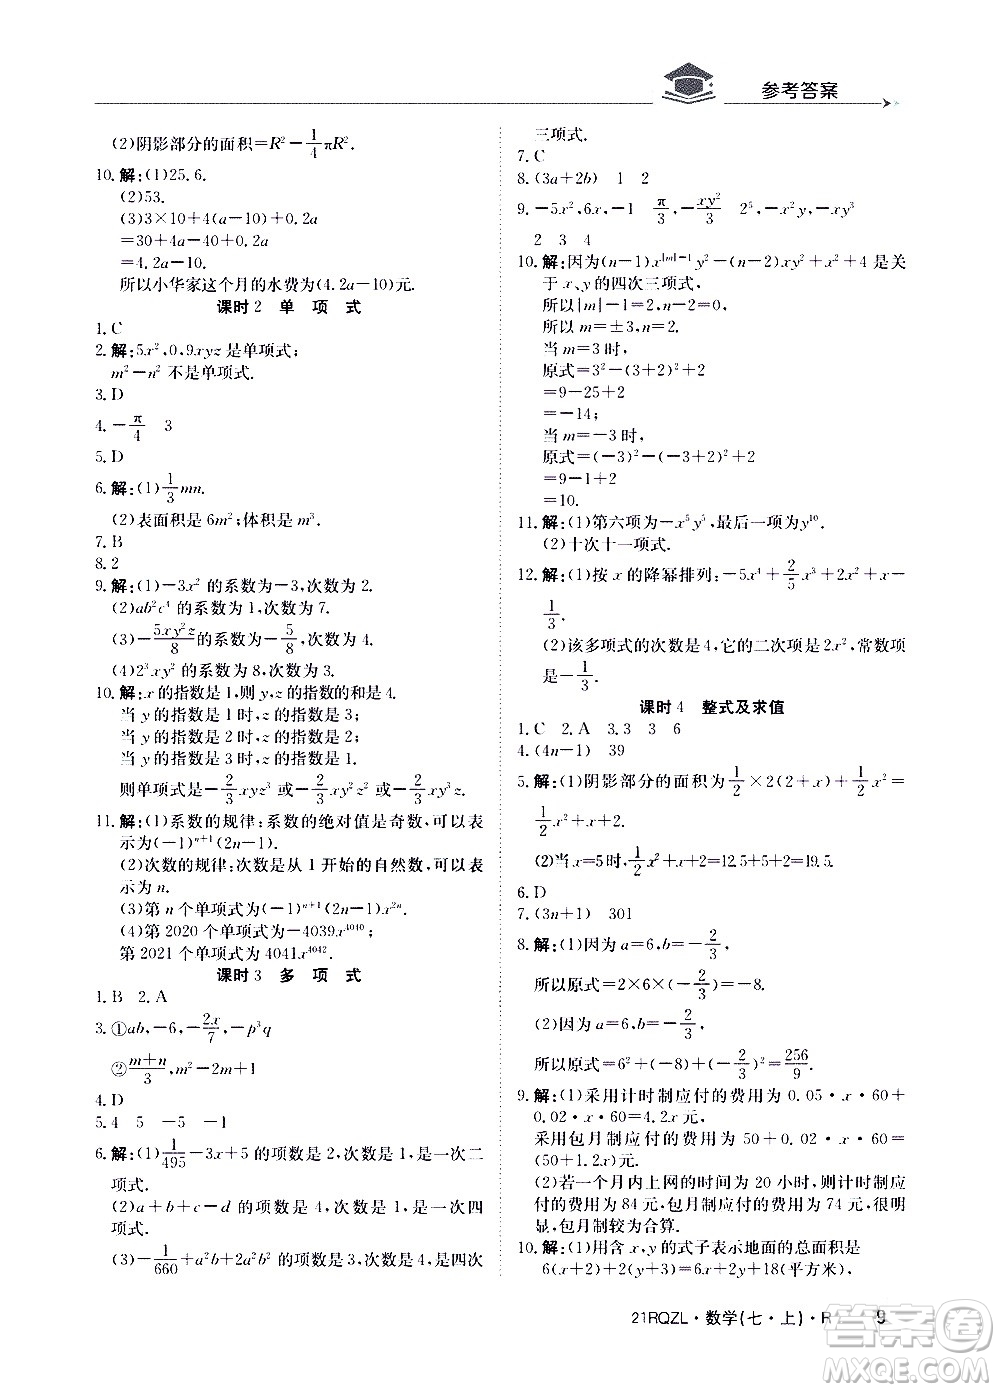 参考答案
(2)阴影部分的面积=R²-1/4πR².
10. 解:(1)25.6.
(2)53.
(3)3×10+4(a-10)+0.2a
=30+4a-40+0.2a
=4.2a-10.
所以小华家这个月的水费为(4.2a-10)元.
课时2 单 项 式
1. C
2. 解:5x²,0,9xyz是单项式;
m²-n² 不是单项式.
3. D
4. -π/4 3
5. D
6. 解:(1)1/3mn.
(2)表面积是6m²;体积是m³.
7. B
8. 2
9. 解:(1)-3x² 的系数为-3,次数为2.
(2)ab²c⁴ 的系数为1,次数为7.
(3)-5xy²z/8的系数为-5/8,次数为4.
(4)2³xy² 的系数为8,次数为3.
10. 解:x的指数是1,则y,z的指数的和是4.
当y的指数是1时,z的指数是3;
当y的指数是2时,z的指数是2;
当y的指数是3时,z的指数是1;
则单项式是-2/3xyz³ 或-2/3xy²z² 或-2/3xy³z.
11. 解:(1)系数的规律:系数的绝对值是奇数,可以表
示为(-1)ⁿ⁺¹(2n-1).
(2)次数的规律:次数是从1开始的自然数,可以表
示为n.
(3)第n个单项式为(-1)ⁿ⁺¹(2n-1)x²ⁿ.
(4)第2020个单项式为-4039x⁴⁰⁴⁰;
第2021个单项式为4041x⁴⁰⁴².
课时3 多 项 式
1. B 2. A
3. ①ab,-6,-2x/7,-p³q
②m+n/3,m²-2m-1
4. D
5. 4 5 -5 -1
6. 解:(1)1/495-3x+5的项数是2,次数是1,是一次二
项式.
(2)a+b+c-d的项数是4,次数是1,是一次四
项式.
(3)-1/660+a²b+a²b²的项数是3,次数是4,是四次
三项式.
7. C
8. (3a+2b) 1 2
9. -5x²,6x,-1 π/3 -xy²/3 2⁵,-x²y,-xy³
2 3 4
10. 解:因为(n-1)x|ᵐ|⁻¹y²-(m-2)xy+x²+4是关
于x、y的四次三项式,
所以|m|-1=2,
所以m=±3,n=2,
当m=3时,
原式=3²-5²+2
=9-25+2
=-14;
当m=-3时,
原式=(-3)²-(-3+2)²+2
=9-1+2
=10.
11. 解:(1)第六项为-x⁵y⁵,最后一项为y¹⁰.
(2)十次十一项式.
12. 解:(1)按x的降幂排列:-5x⁴+2/5x³+2x²+x-
1/3.
(2)该多项式的次数是4,它的二次项是2x²,常数项
是-1/3.
课时4 整式及求值
1. C 2. A 3. 3 3 6
4. (4n-1) 39
5. 解:(1)阴影部分的面积为1/2×2(2+x)+1/2x²=
1/2x²+x+2.
(2)当x=5时,1/2x²+x+2=12.5+5+2=19.5.
6. D
7. (3n+1) 301
8. 解:(1)因为a=6,b=-2/3,
所以原式=2×6×(-2/3)=-8.
(2)因为a=6,b=-2/3,
所以原式=6²+(-8)+(-2/3)²=256/9
9. 解:(1)采用计时制应付的费用为0.05·x·60+
0.02·x·60=4.2x元,
采用包月制应付的费用为50+0.02·x·60=
(50+1.2x)元.
(2)若一个月内上网的时间为20小时,则计时制应
付的费用为84元,包月制应付的费用为74元,很明
显,包月制较为合算.
10. 解:(1)用含x,y的式子表示地面的总面积是
6(x+2)+2(x-2)+2y=8x+2y+18(平方米),
21RQZL·数学(七·上)·R 9
答案圈
MXQE.COM